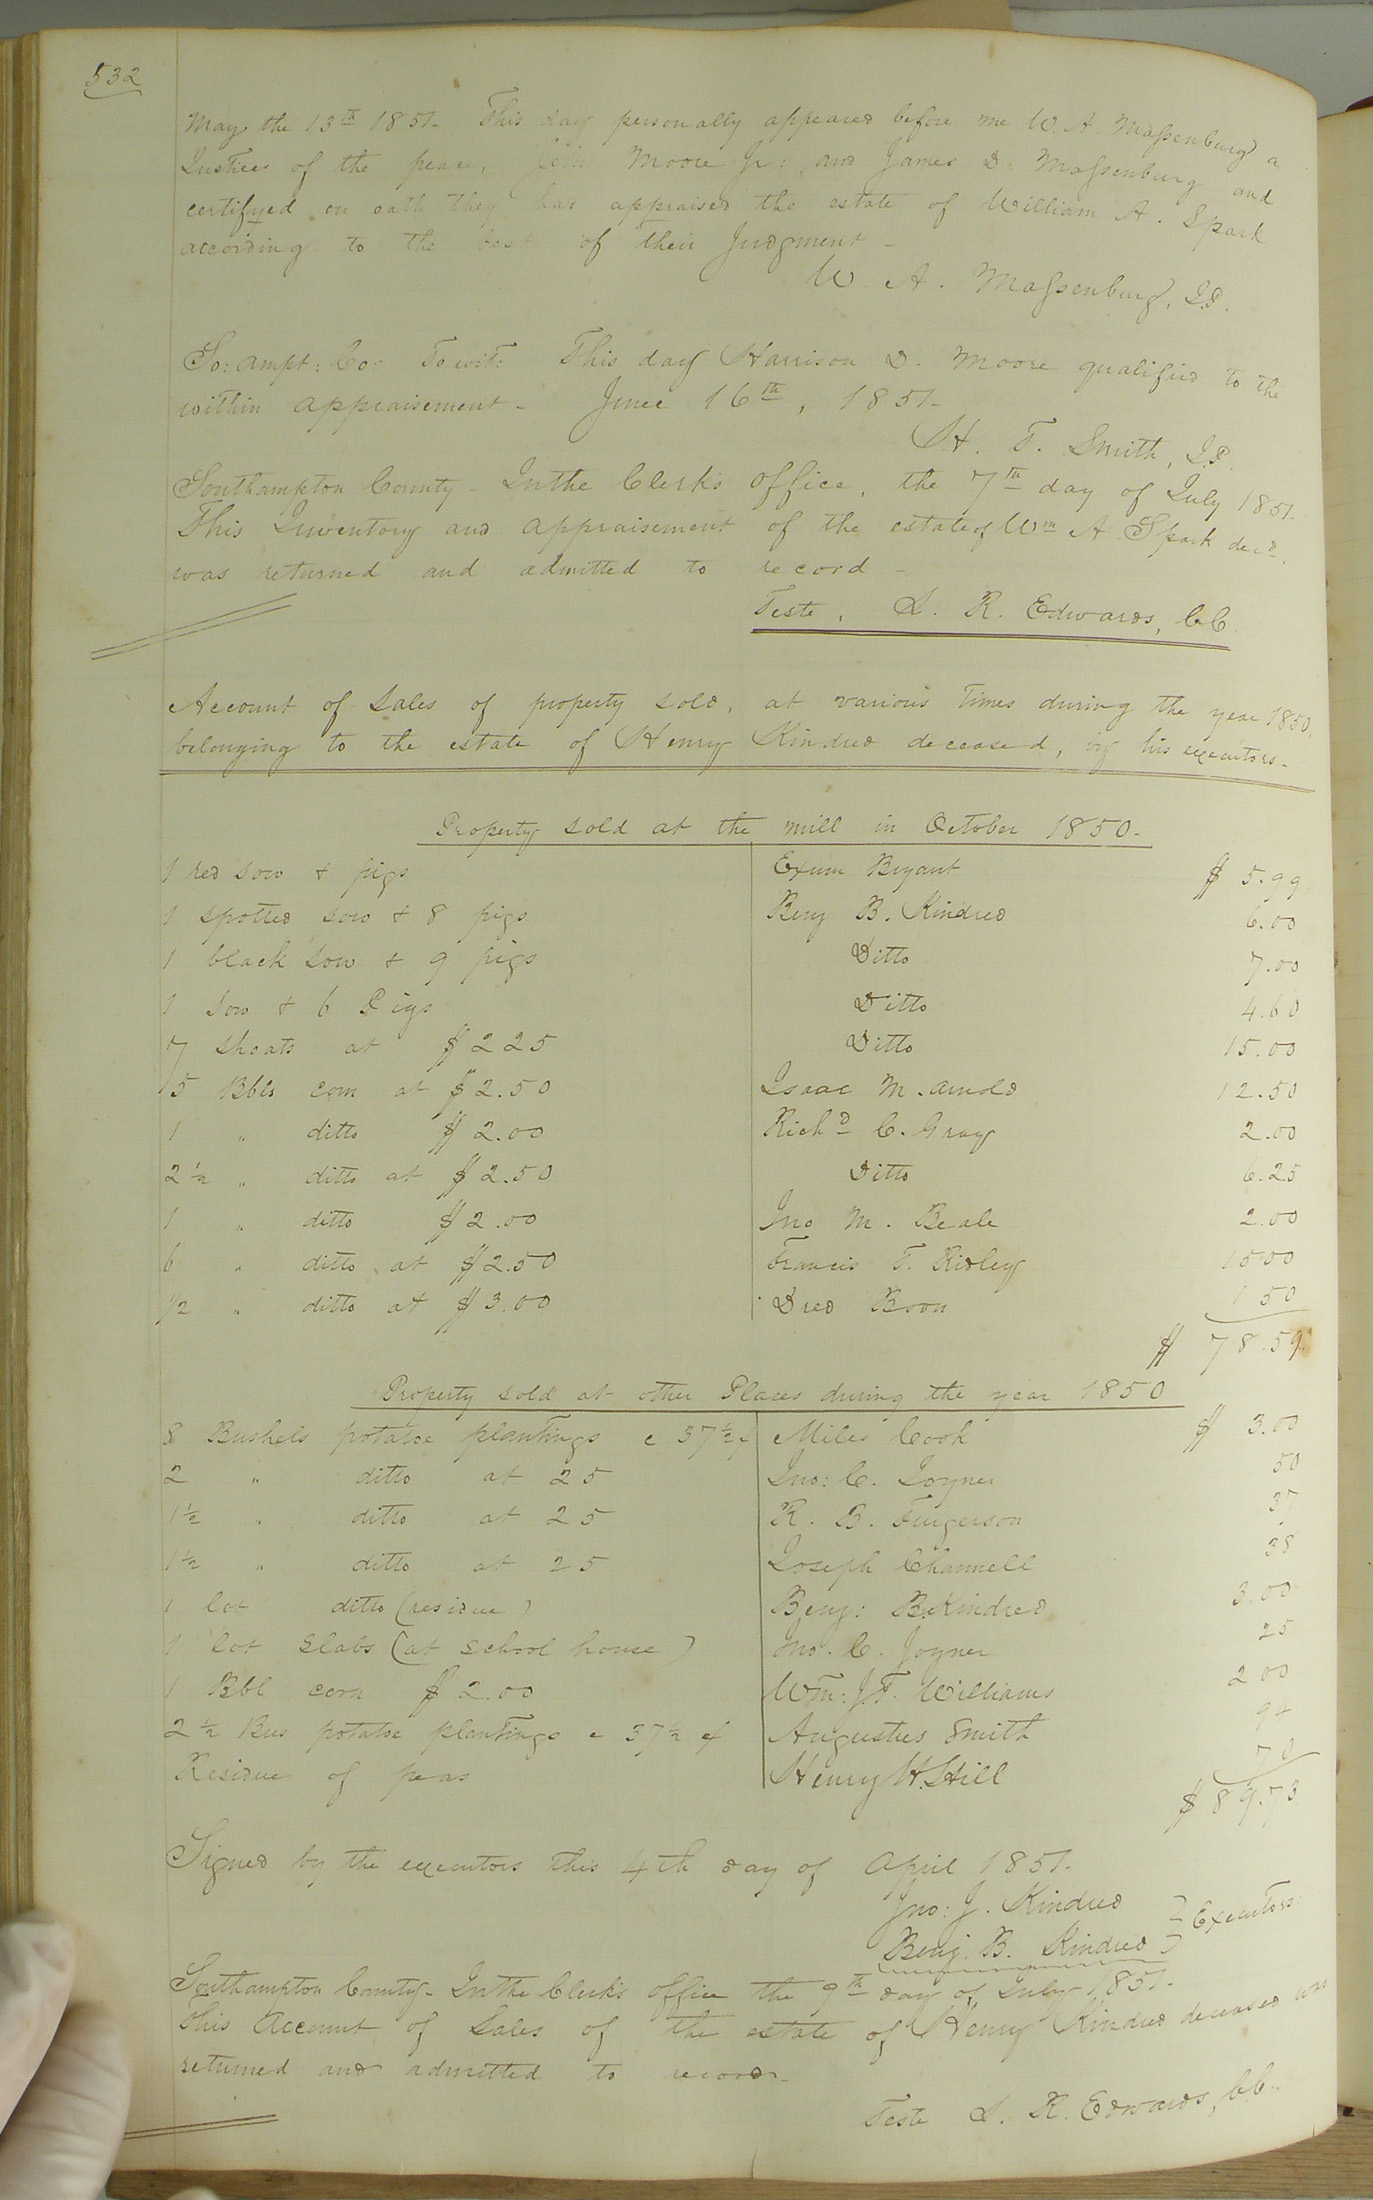 532
May the 13th 1851. This day personally appeared before me W. A. Massenburg a
Justice of the peace, Moore Jr: and James D. Massenburg and
certifyed on oath they had appraised the estate of William A. Spark
according to the best of their Judgment -
W. A. Massenburg, J.P.
So: ampt: Co: To wit: This day Harrison D. Moore qualified to the
within appraisement - June 16th, 1851-
H. T. Smith, J.P.
Southampton County - In the Clerk's office, the 7th day of July 1851.
This Inventory and appraisement of the estate of Wm A Spark decd
was returned and admitted to record -
Teste, L. R. Edwards, CC
Account of Sales of property sold, at various times during the year 1850,
belonging to the estate of Henry Kindred deceased, by his executors -
Property sold at the mill in October 1850-
1 red sow & pigs Exum Bryant $ 5.99
1 spotted sow & 8 pigs Benj B. Kindred 6.00
1 black sow & 9 pigs Ditto 7.00
1 Sow & 6 Pigs Ditto 4.60
7 shoats at $ 2 25 Ditto 15.00
5 Bbls corn at $ 2.50 Isaac M. Arnold 12.50
1 " ditto $ 2.00 Richd C. Gray 2.00
2 ½ " ditto at $ 2.50 Ditto 6.25
1 " ditto $ 2.00 Jno M. Beale 2.00
6 " ditto at $ 2.50 Francis T. Ridley 15 00
½ " ditto at $ 3.00 Dred Boon 1 50
$ 78.59
Property sold at other Places during the year 1850
8 Bushels potatoe plantings @ 37½ ¢ Miles Cook $ 3.00
2 " ditto at 25 Jno: C. Joyner 50
1½ " ditto at 25 R. B. Furgerson 37
1½ " ditto at 25 Joseph Channell 38
1 lot ditto (residue) Benj: B. Kindred 3.00
1 lot Slabs (at school house) Jno. C. Joyner 25
1 Bbl corn $ 2.00 Wm: J. T. Williams 2 00
2 ½ Bus potatoe plantings @ 37½ ¢ Augustus Smith 94
Residue of peas Henry H. Hill 70
$ 89.73
Signed by the executors this 4th day of April 1851.
Jno: J. Kindred
Benj. B. Kindred } Executors:
Southampton County - In the Clerk's office the 9th day of July 1851.
This Account of Sales of the estate of Henry Kindred deceased was
returned and admitted to record -
Teste L. R. Edwards, CC.